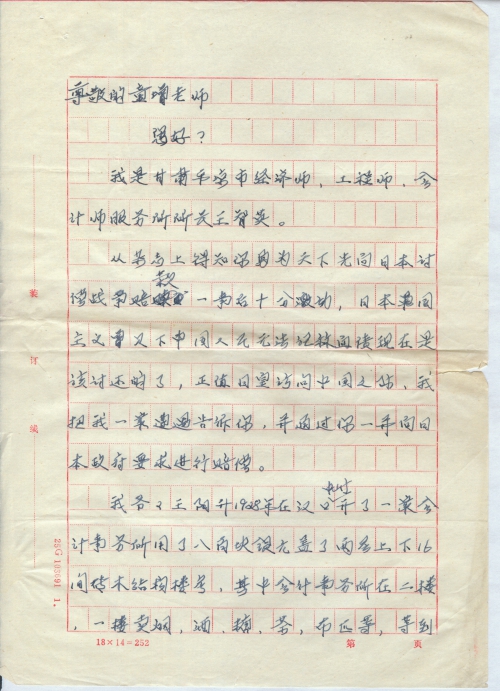 尊敬的童增老师
您好？
我是甘肃平凉市经济师、工程师、会
计师服务所所长王智英。
从参与上得知你勇为天下先向日本讨
偿战争赔款一事后十分激动，日本帝国
主义
下中国人民无法
债现在是
该讨还时了，正值日皇访问中国之际，我
把我一家遭遇告诉你，并通过你一并向日
本政府要求进行赔偿。
我爷王阳升1928年在汉口开了一家会
计事务所用了八百块银元盖了两层上下16
间砖木结构楼房，其中会计事务所在二楼
，一楼卖烟，酒，糖，茶，布匹等，等到
装
订
线
25G 10891 1.
18×14=252
第 页